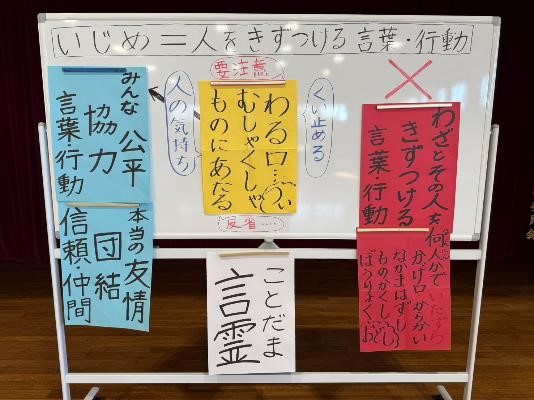 いじめ＝人をきずつける言葉・行動
みんな 公平
協力
言葉・行動
本当の友情
団結
信頼・仲間
人の気持ち
要注意
わる口……つい
むしゃくしゃ
ものにあたる
反省……
くい止める
ことだま
言霊
わざとその人を
きずつける
言葉・行動
何人かでいたずら
かげ口 からかい
なかまはずし
ものかくし
ぼうりょく おどし